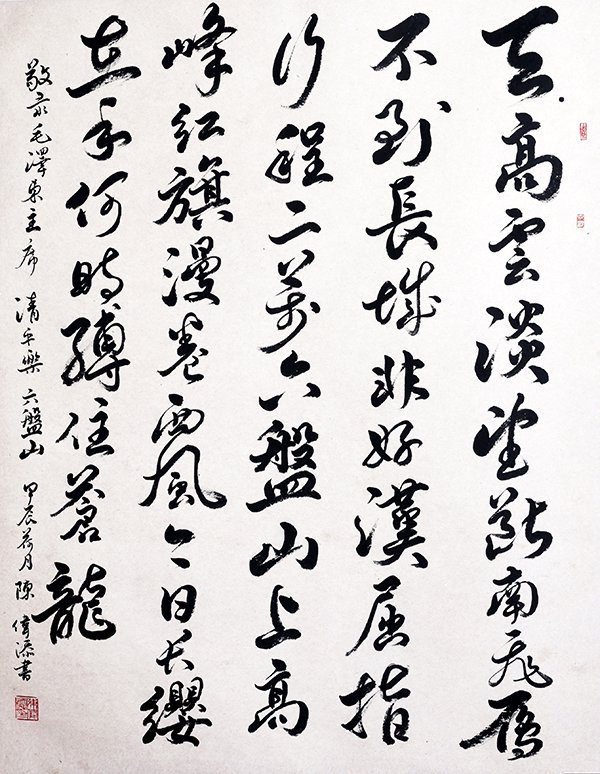 天高雲淡望斷南飛雁
不到長城非好漢屈指
行程二萬六盤山上高
峰紅旗漫卷西風今日长纓
在手何時縛住蒼龍
敬录毛澤東主席 清平樂 六盤山 甲辰荷月陳偉添書